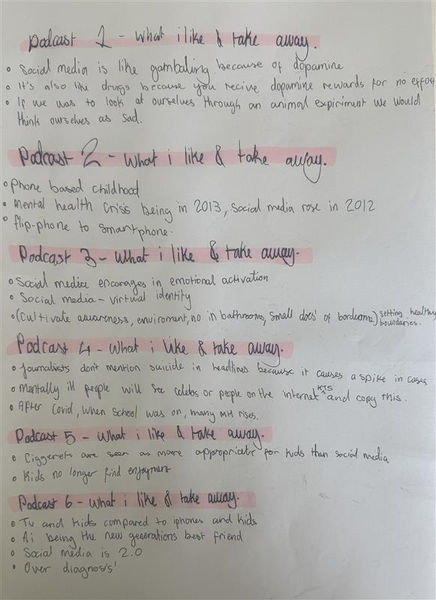 Podcast 1 - What i like & take away.
• Social media is like gambaling because of dopamine
• It's also like drugs brcause you recive dopamine rewards for no effort
• If we was to look at ourselves through an animal expiriment we would
think ourselves as sad.
Podcast 2 - What i like & take away.
• Phone based childhood
• Mental health Crisis being in 2013, Social media rose in 2012
• flip-phone to smartphone.
Podcast 3 - What i like & take away.
• Social media encorages in emotional activation
• Social media - virtual identity
• (Cultivate awareness, enviroment, no in bathrooms, small docs' of bordeome) setting healthy
boundaries.
Podcast 4 - What i like & take away.
• Journalists don't mention suicide in headlines because it causes a spike in cases
• Mentally ill people will see celebs or people on the internet KTS and copy this.
• After Covid, when School was on, many MH rises.
Podcast 5 - What i like & take away.
• Ciggerets are seen as more appropriate for kids than social media
• Kids no longer find enjoyment
Podcast 6 - What i like & take away.
• Tv and Kids compared to iphones and kids
• Ai being the new generations best friend
• Social media is 2.0
• Over diagnosis'